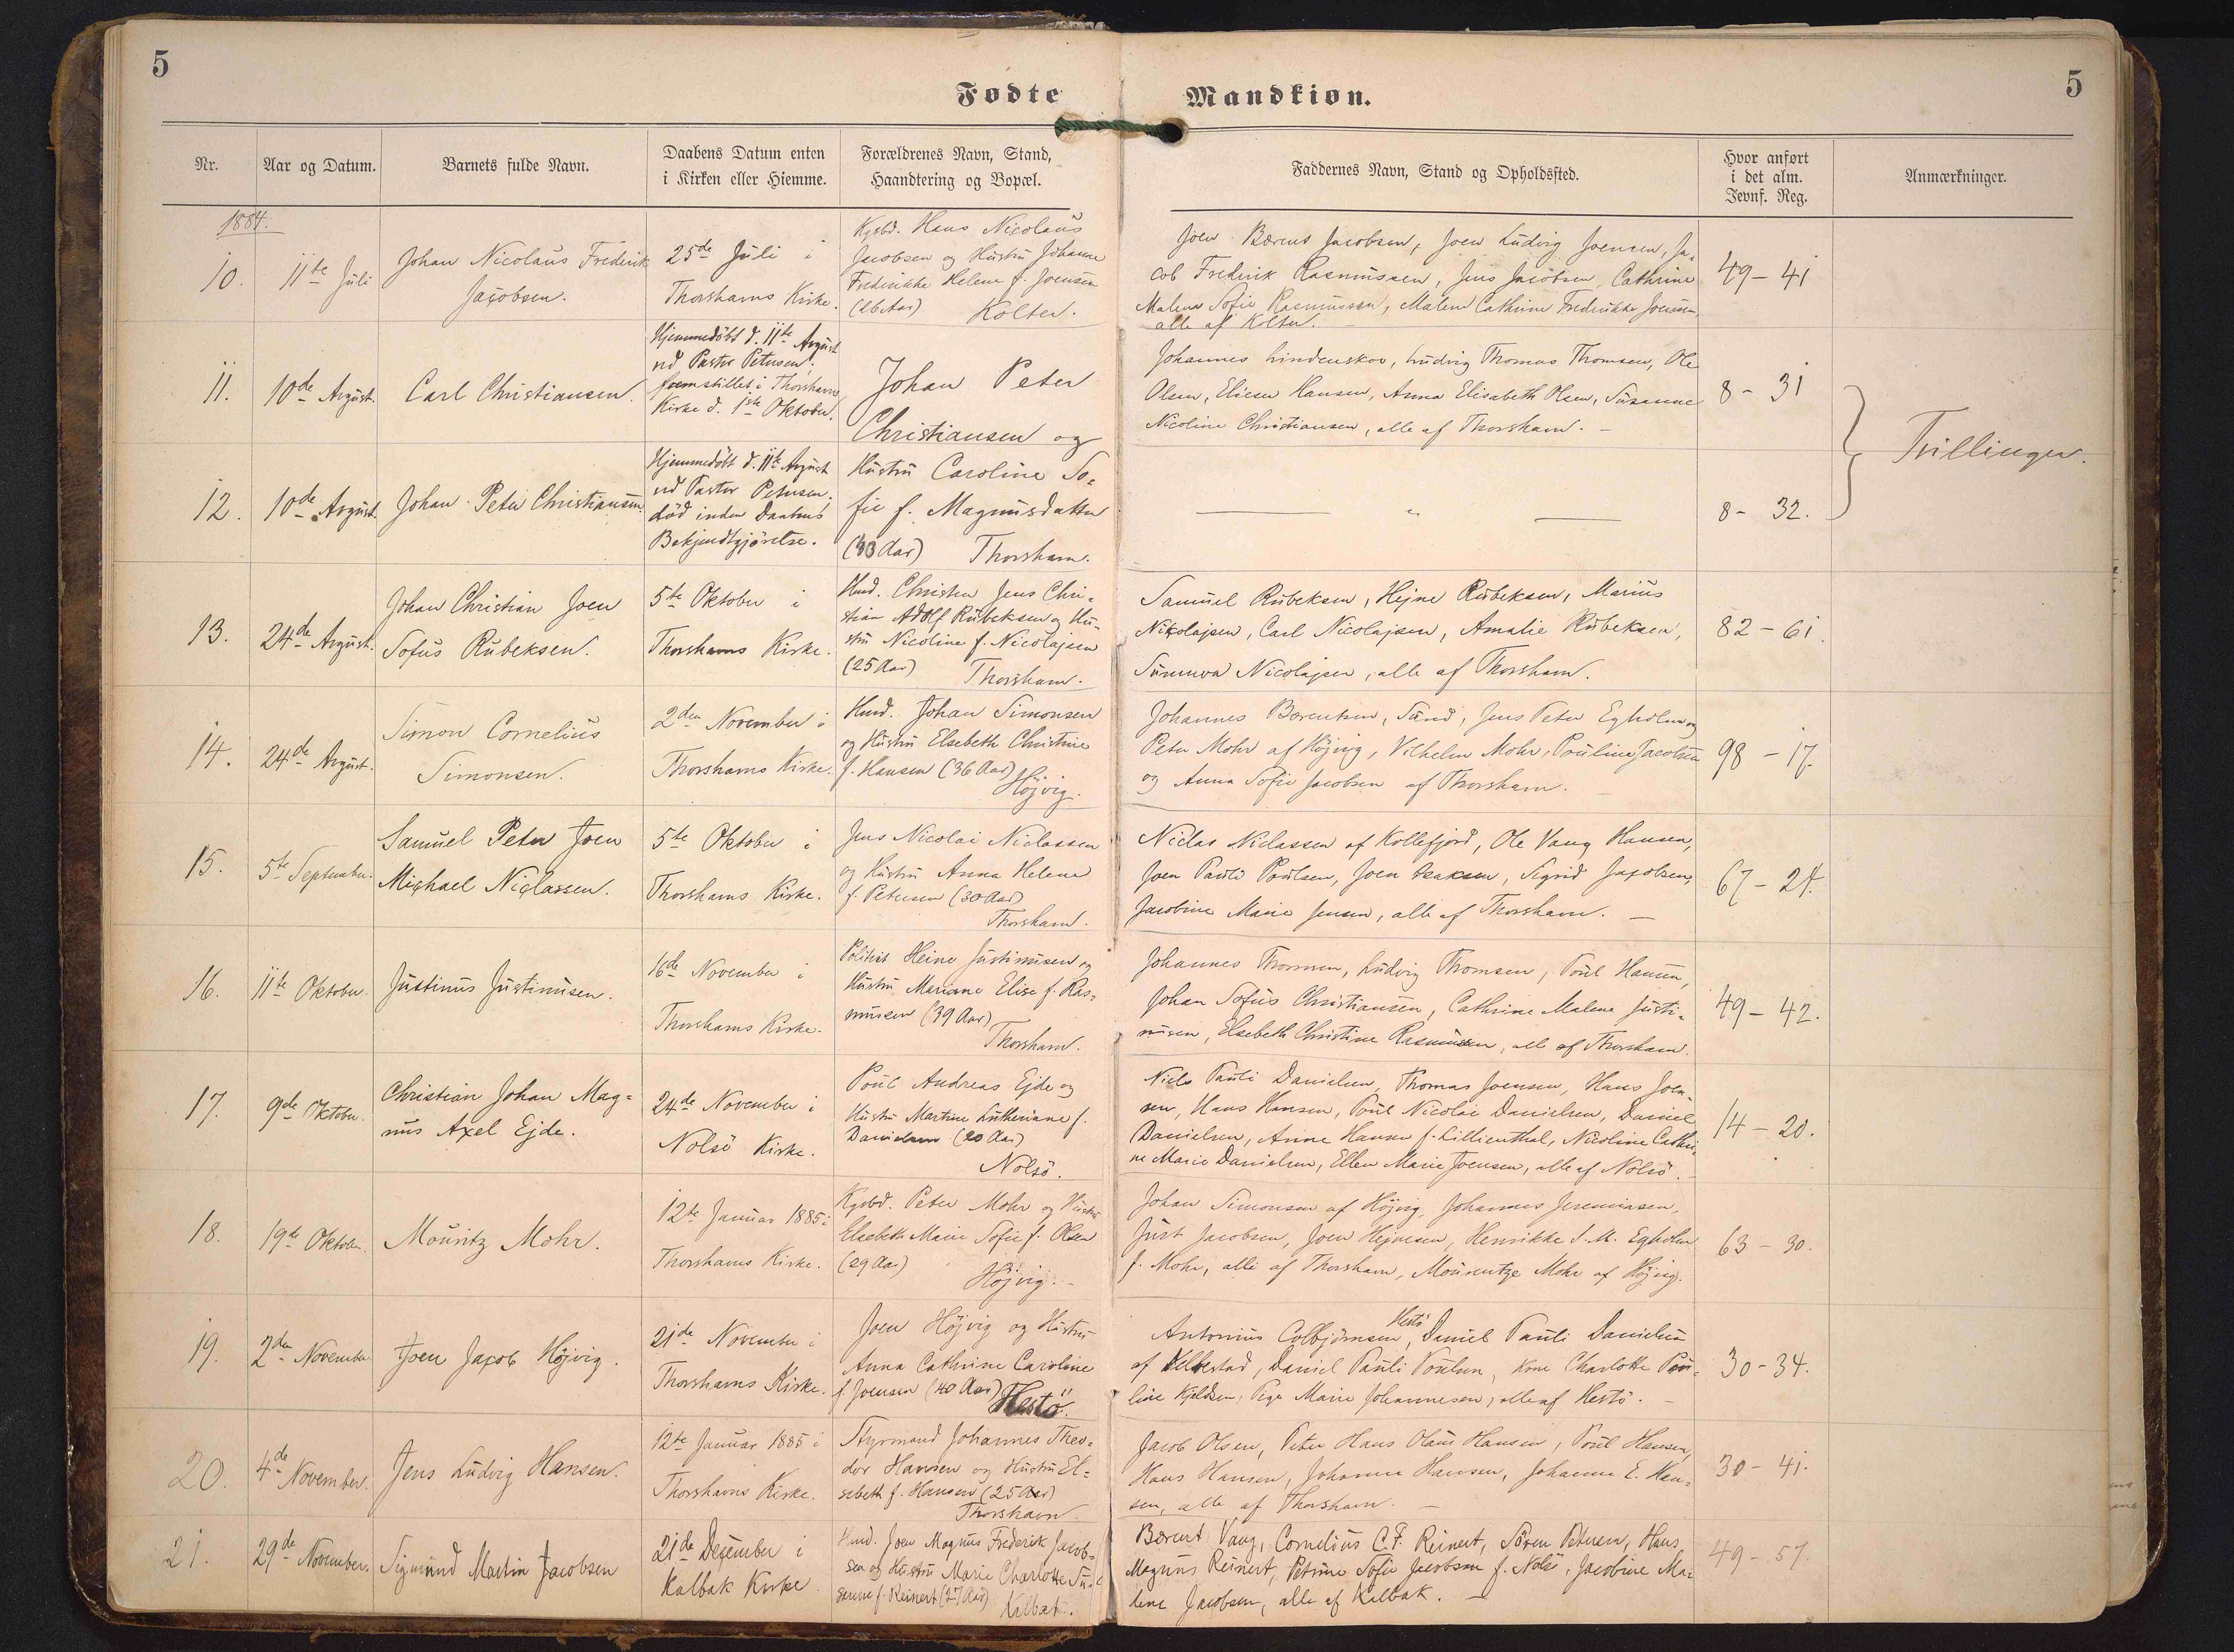 5
5
Fødte Mandkiøn.
Nr.
Aar og Datum.
Barnets fulde Navn.
Daabens Datum enten
i Kirken eller Hiemme.
Forældrenes Navn, Stand,
Haandtering og Bopæl.
Faddernes Navn, Stand og Opholdssted.
Hvor anført
i det alm.
Jevnf. Reg.
Anmærkninger.
1884.
10.
11te Juli
Johan Nicolaus Frederik
Jacobsen.
25de Juli i
Thorshavns Kirke.
Kgsbd. Hans Nicolaus
Jacobsen og Hustru Johanne
Fredrikke Helene f. Joensen
(26 Aar) Kolter.
Joen Bærent Jacobsen, Joen Ludvig Joensen, Ja-
cob Frederik Rasmussen, Jens Jacobsen, Cathrine
Malene Sofie Rasmussen, Malene Cathrine Fredrikke Joensen,
alle af Kolter.
49 - 41
11.
10de August.
Carl Christiansen.
Hjemmedöbt d. 11te August
ved Pastor Petersen,
fremstillet i Thorshavns
Kirke d. 1ste Oktober.
Johan Peter
Christiansen og
Johannes Lindenskov, Ludvig Thomas Thomsen, Ole
Olsen, Eliesen Hansen, Anna Elisabeth Olsen, Susanne
Nicoline Christiansen, alle af Thorshavn. -
8 - 31
Tvillinger.
12.
10de August.
Johan Peter Christiansen.
Hjemmedöbt d. 11te August
ved Pastor Petersen.
död inden Daabens
Bekjendtgjörelse.
Hustru Caroline So-
fie f. Magnusdatter
(43 Aar) Thorshavn.
— " —
8 - 32.
13.
24de August.
Johan Christian Joen
Sofus Rubeksen.
5te Oktober i
Thorshavns Kirke.
Hmd. Christen Jens Chri-
stian Adolf Rubeksen og Hu-
stru Nicoline f. Nicolajsen
(25 Aar) Thorshavn.
Samuel Rubeksen, Hejne Rubeksen, Marius
Nikolajsen, Carl Nicolajsen, Amalie Rubeksen,
Sunneva Nicolajsen, alle af Thorshavn.
82 - 61.
14.
24de August.
Simon Cornelius
Simonsen.
2den November i
Thorshavns Kirke.
Hmd. Johan Simonsen
og Hustru Elsebeth Christine
f. Hansen (36 Aar)
Höjvig.
Johannes Bærentsen, Sund, Jens Peter Egholm og
Peter Mohr af Höjvig, Vilhelm Mohr, Pouline Jacobsen
og Anna Sofie Jacobsen af Thorshavn.
98 - 17.
15.
5te September.
Samuel Peter Joen
Michael Niclassen.
5te Oktober i
Thorshavns Kirke.
Jens Nicolai Niclassen
og Hustru Anna Helene
f. Petersen (30 Aar)
Thorshavn.
Niclas Niclassen af Kollefjord, Ole Vang Hansen,
Joen Pauli Poulsen, Joen Isaksen, Sigrid Jacobsen,
Jacobine Marie Jensen, alle af Thorshavn. —
67 - 24.
16.
11te Oktober.
Justinus Justinusen.
16de November i
Thorshavns Kirke.
Politibt Heine Justinusen og
Hustru Mariane Elise f. Ras-
mussen (39 Aar)
Thorshavn.
Johannes Thomsen, Ludvig Thomsen, Poul Hansen,
Johan Sofus Christiansen, Cathrine Malene Justi-
nusen, Elsebeth Christine Rasmussen, alle af Thorshavn.
49 - 42.
17.
9de Oktober.
Christian Johan Mag-
nus Axel Ejde.
24de November i
Nolsö Kirke.
Poul Andreas Ejde og
Hustru Martine Lutheriane f.
Danielsen (20 Aar)
Nolsö.
Niels Pauli Danielsen, Thomas Joensen, Hans Joen-
sen, Hans Hansen, Poul Nicolai Danielsen, Daniel
Danielsen, Anne Hansen f. Lillienthal, Nicoline Cathri-
ne Marie Danielsen, Ellen Marie Joensen, alle af Nolsö.
14 - 20.
18.
19de Oktober.
Mouritz Mohr.
12te Januar 1885 i
Thorshavns Kirke.
Kgsbd. Peter Mohr og Hustru
Elsebeth Marie Sofie f. Olsen
(29 Aar)
Höjvig.
Johan Simonsen af Höjvig, Johannes Jeremiasen,
Just Jacobsen, Joen Hejnesen, Henrikke S. M. Egholm
f. Mohr, alle af Thorshavn, Mourentze Mohr af Höjvig.
63 - 30.
19.
2den November
Joen Jacob Höjvig.
21de November i
Thorshavns Kirke.
Joen Höjvig og Hustru
Anna Cathrine Caroline
f. Joensen (40 Aar)
Hestö.
Hestö
Antonius Colbjörnsen, Daniel Pauli Danielsen
af Velbestad, Daniel Pauli Poulsen, Kone Charlotte Pou-
line Kjeldsen, Pige Marie Johannesen, alle af Hestö. -
30 - 34.
20.
4de November.
Jens Ludvig Hansen.
12te Januar 1885 i
Thorshavns Kirke.
Styrmand Johannes Theo-
dor Hansen og Hustru El-
sebeth f. Hansen (25 Aar)
Thorshavn.
Jacob Olsen, Peter Hans Olaus Hansen, Poul Hansen,
Hans Hansen, Johanne Hansen, Johanne E. Han-
sen, alle af Thorshavn. —
30 - 41.
21.
29de November.
Sigmund Martin Jacobsen
21de December i
Kalbak Kirke.
Hmd. Joen Magnus Frederik Jacob-
sen og Hustru Marie Charlotte Su-
sanne f. Reinert (27 Aar)
Kalbak.
Bærent Vang, Cornelius C. F. Reinert, Sören Petersen, Hans
Magnus Reinert, Petrine Sofie Jacobsen f. Nolsö, Jacobine Ma-
lene Jacobsen, alle af Kalbak. —
49 - 57.